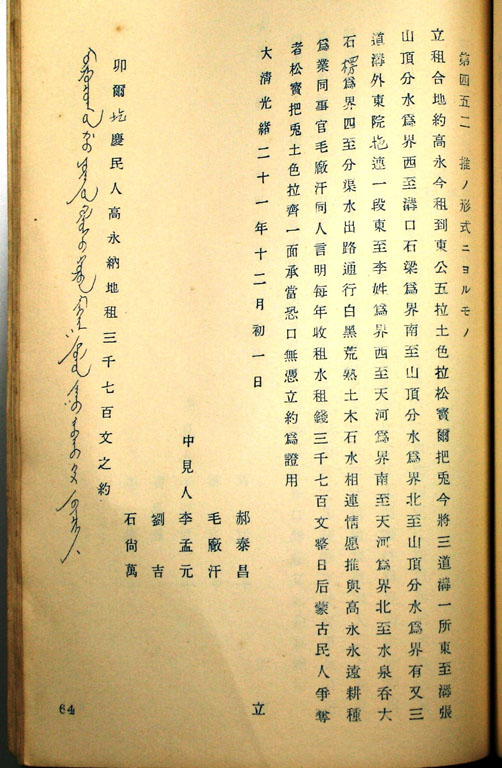 第四五二　推ノ形式ニヨルモノ
立租合地約高永今租到東公五拉土色拉松賓爾把兎今將三道溝一所東至溝張
山頂分水爲界西至溝口石梁爲界南至山頂分水爲界北至山頂分水爲界有又三
道溝外東院地連一段東至李姓爲界西至天河爲界南至天河爲界北至水泉呑大
石楞爲界四至分渠水出路通行白黑荒熟土木石水相連情愿推與高永永遠耕種
爲業同事官毛廠汗同人言明每年收租水租錢三千七百文整日后蒙古民人爭奪
者松賓把兎土色拉齊一面承當恐口無憑立約爲證用
大清光緒二十一年十二月初一日
郝泰昌
毛廠汗
中見人李孟元
劉　吉
石尙萬
立
卯爾圪慶民人高永納地租三千七百文之約
64